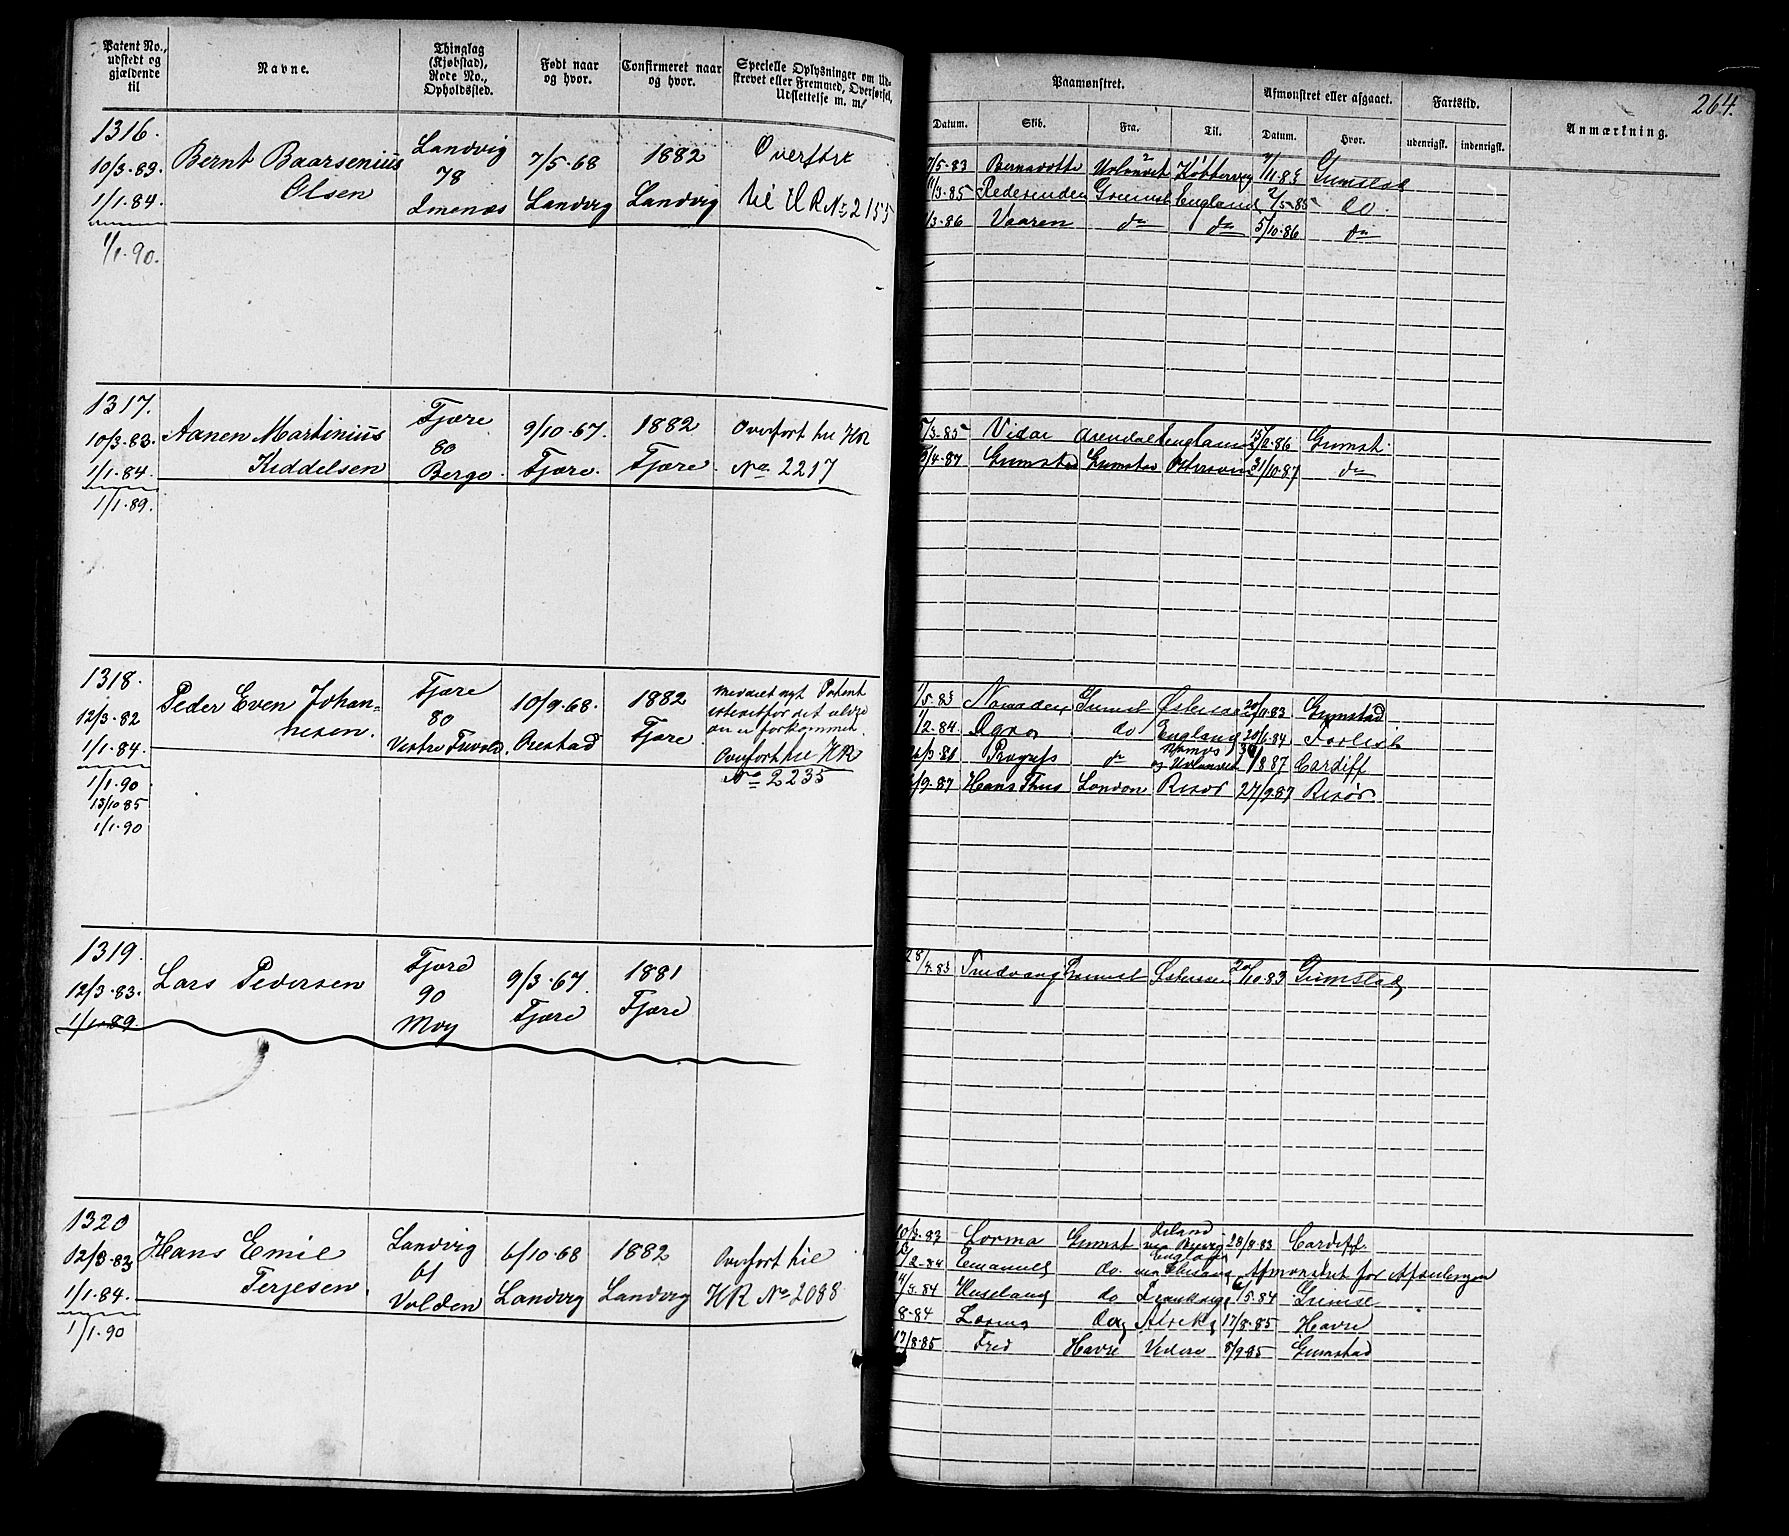 264.
Patent No., udstedt og gjældende til
Navne.
Thinglag (Kjøbstad), Rode No., Opholdssted.
Født naar og hvor.
Confirmeret naar og hvor.
Specielle Oplysninger om Udskrevet eller Fremmed, Overførsel, Udslettelse m. m.
Paamønstret.
Afmønstret eller afgaaet.
Fartstid.
Anmærkning.
Datum. Skib. Fra. Til. Datum. Hvor. udenrigsk. indenrigsk.
1316.
10/3.83.
1/1.84.
1/1.90.
Bernt Baarsenius
Olsen
Landvig
78
Imenæs
7/5.68
Landvig
1882
Landvig
Overført
til HR No 2155
7/5-83 Bernadotte Grimstad
/3-85 England 2/5-85 do.
/3-86 Vaaren do do 5/10.86 do
1317.
10/3.83.
1/1.84.
1/1.89.
Aanen Martinius
Kiddelsen
Fjære
80
Berge.
9/10.67.
Fjære.
1882
Fjære
Overført til HR
No 2217
/3-85 Vidar Arendal England 15/12.86 Grimst.
/4.87 Grimstad Grimstad Østersøen 31/10.87 do
1318.
12/3.82
1/1.84.
1/1.90
13/10 85
1/1.90
Peder Even Johan=
nesen.
Fjære
80
Vestre Trivold.
10/9.68.
Ørestad
1882
Fjære
Overført til HR
No 2235
1/5.83 Grimst 83 Grimstad
1/2.84 do England 20/.84
Progress do 87 Cardiff
/9.87 Hans Thus London Risør 27/9.87 Risør
1319.
12/3.83.
1/1.89.
Lars Pedersen
Fjære
90
Moy
9/3.67.
Fjære
1881
Fjære
28/4.83 Trudvang Grimst Østersøen 20/10.83 Grimstad
1320
12/3.83
1/1.84.
1/1.90
Hans Emil
Terjesen.
Landvig
61
Volden
6/10.68
Landvig
1882
Landvig
Overført til
HR No 2088
10/3.83 Lorma Grimst 28/8.83 Cardiff.
/2.84 Emanuel do. Afmønstret for
/3.84 do /5.84 Grimst
8.84 Lorma do 17/8.85 Havre
17/8.85 Fred Havre 8/9.85 Grimstad